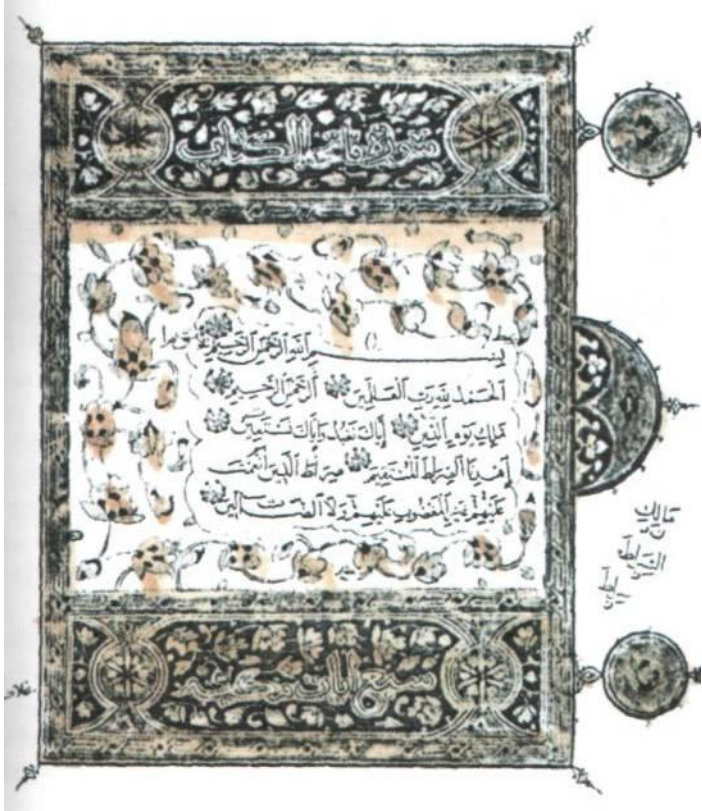 سورة فاتحة الكتاب
بسم الله الرحمن الرحيم
الحمد لله رب العلمين الرحمن الرحيم
ملك يوم الدين إياك نعبد وإياك نستعين
اهدنا الصراط المستقيم صراط الذين أنعمت
عليهم غير المغضوب عليهم ولا الضالين
مالك
سبع آيات مكية